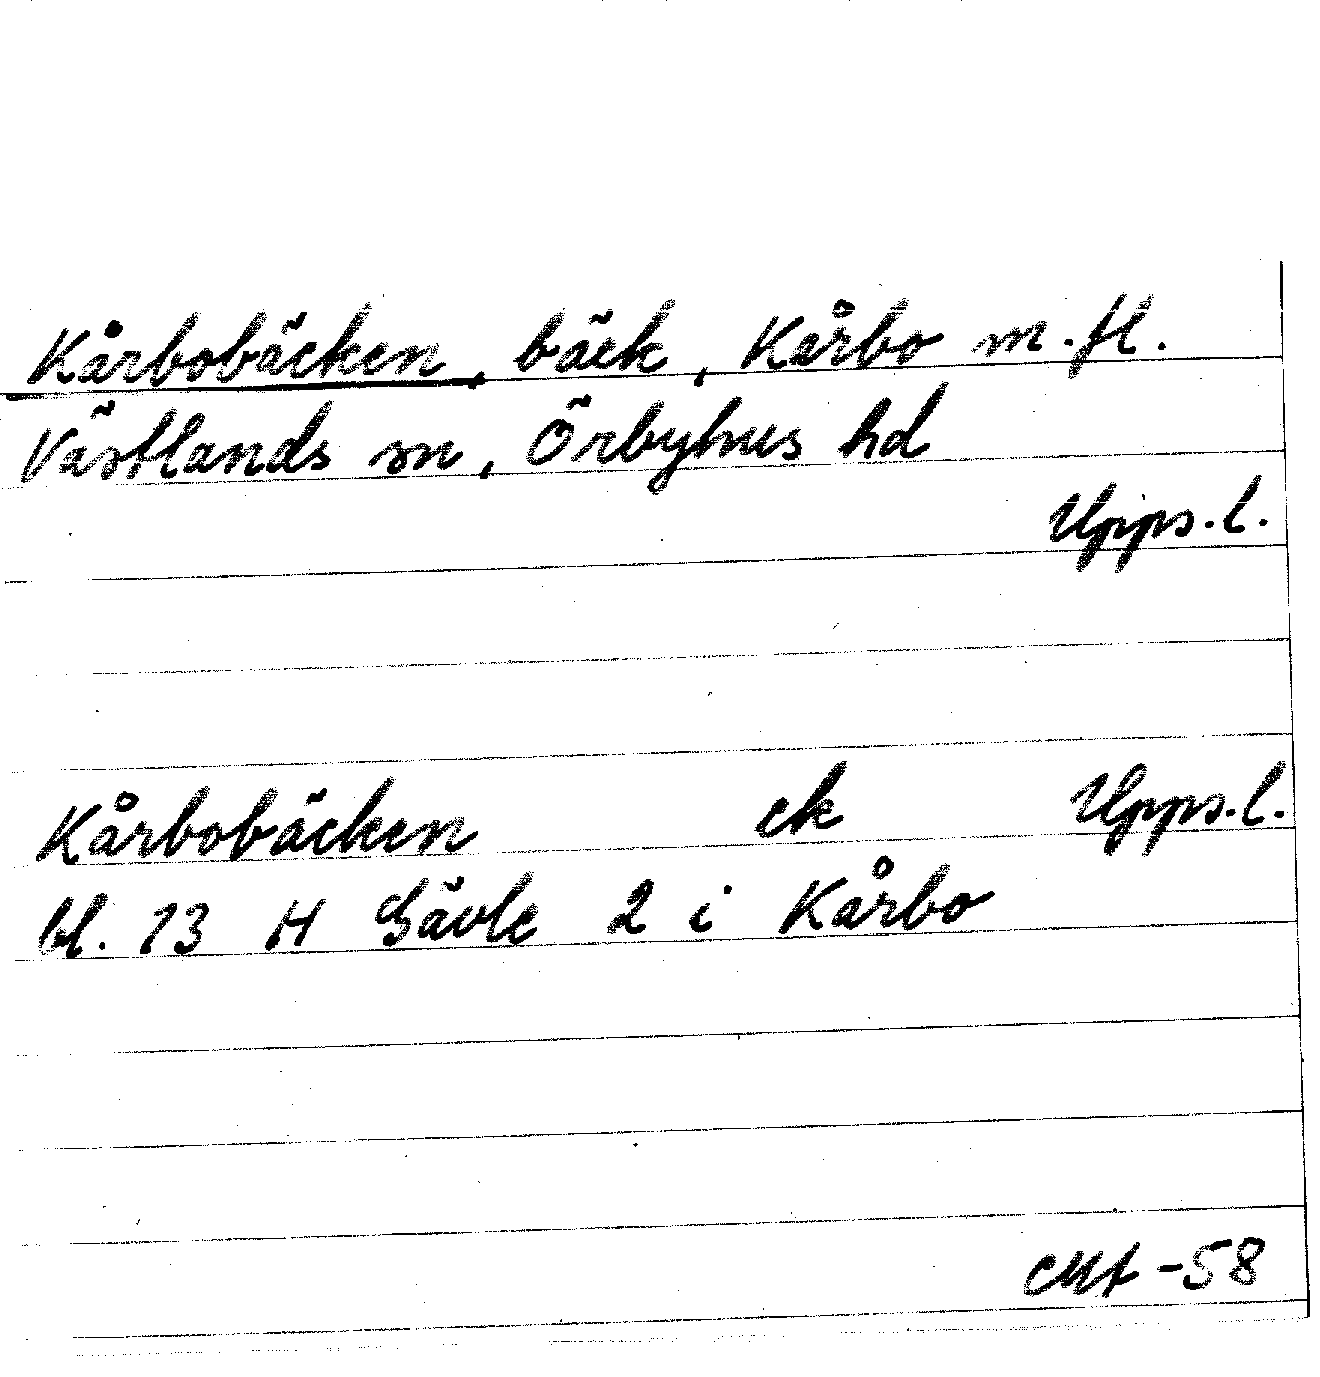 Kårbobäcken, bäck, Kårbo m.fl.
Västlands sn, Örbyhus hd
Upps.l.
Kårbobäcken ek Upps.l.
bl. 13 H Gävle 2 i Kårbo
-58